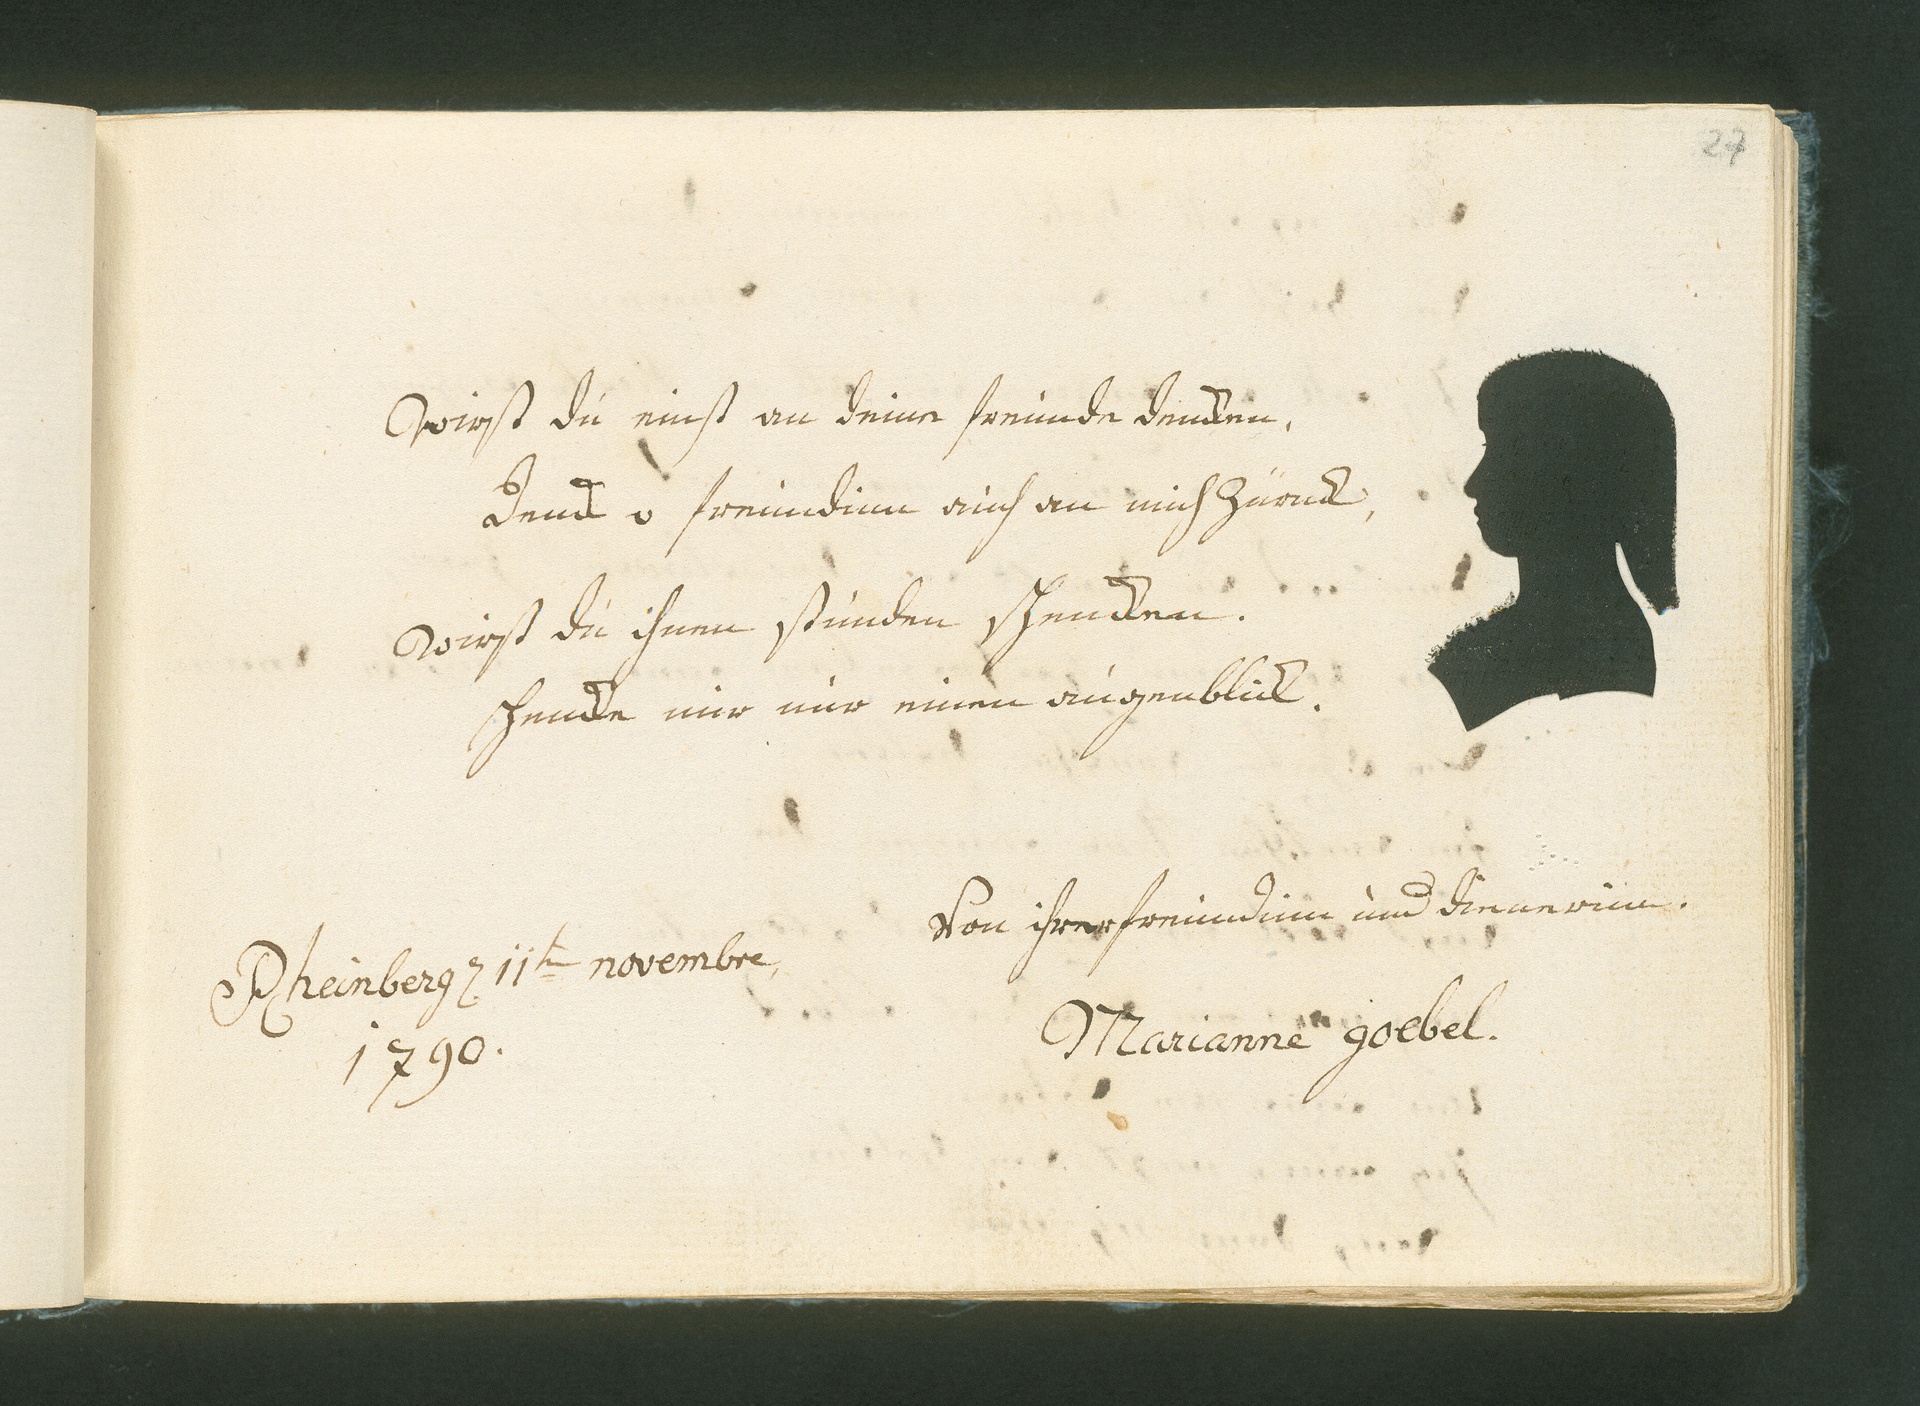 27
Wirst du einst an deine freunde dencken,
denck o freundinn auch an mich Zürück,
wirst du ihnen stunden schencken.
schencke mir nur einen augenblick.
Von ihrer freundinn und dienerinn.
Rheinberg 11te novembre,
1790.
Marianne goebel.